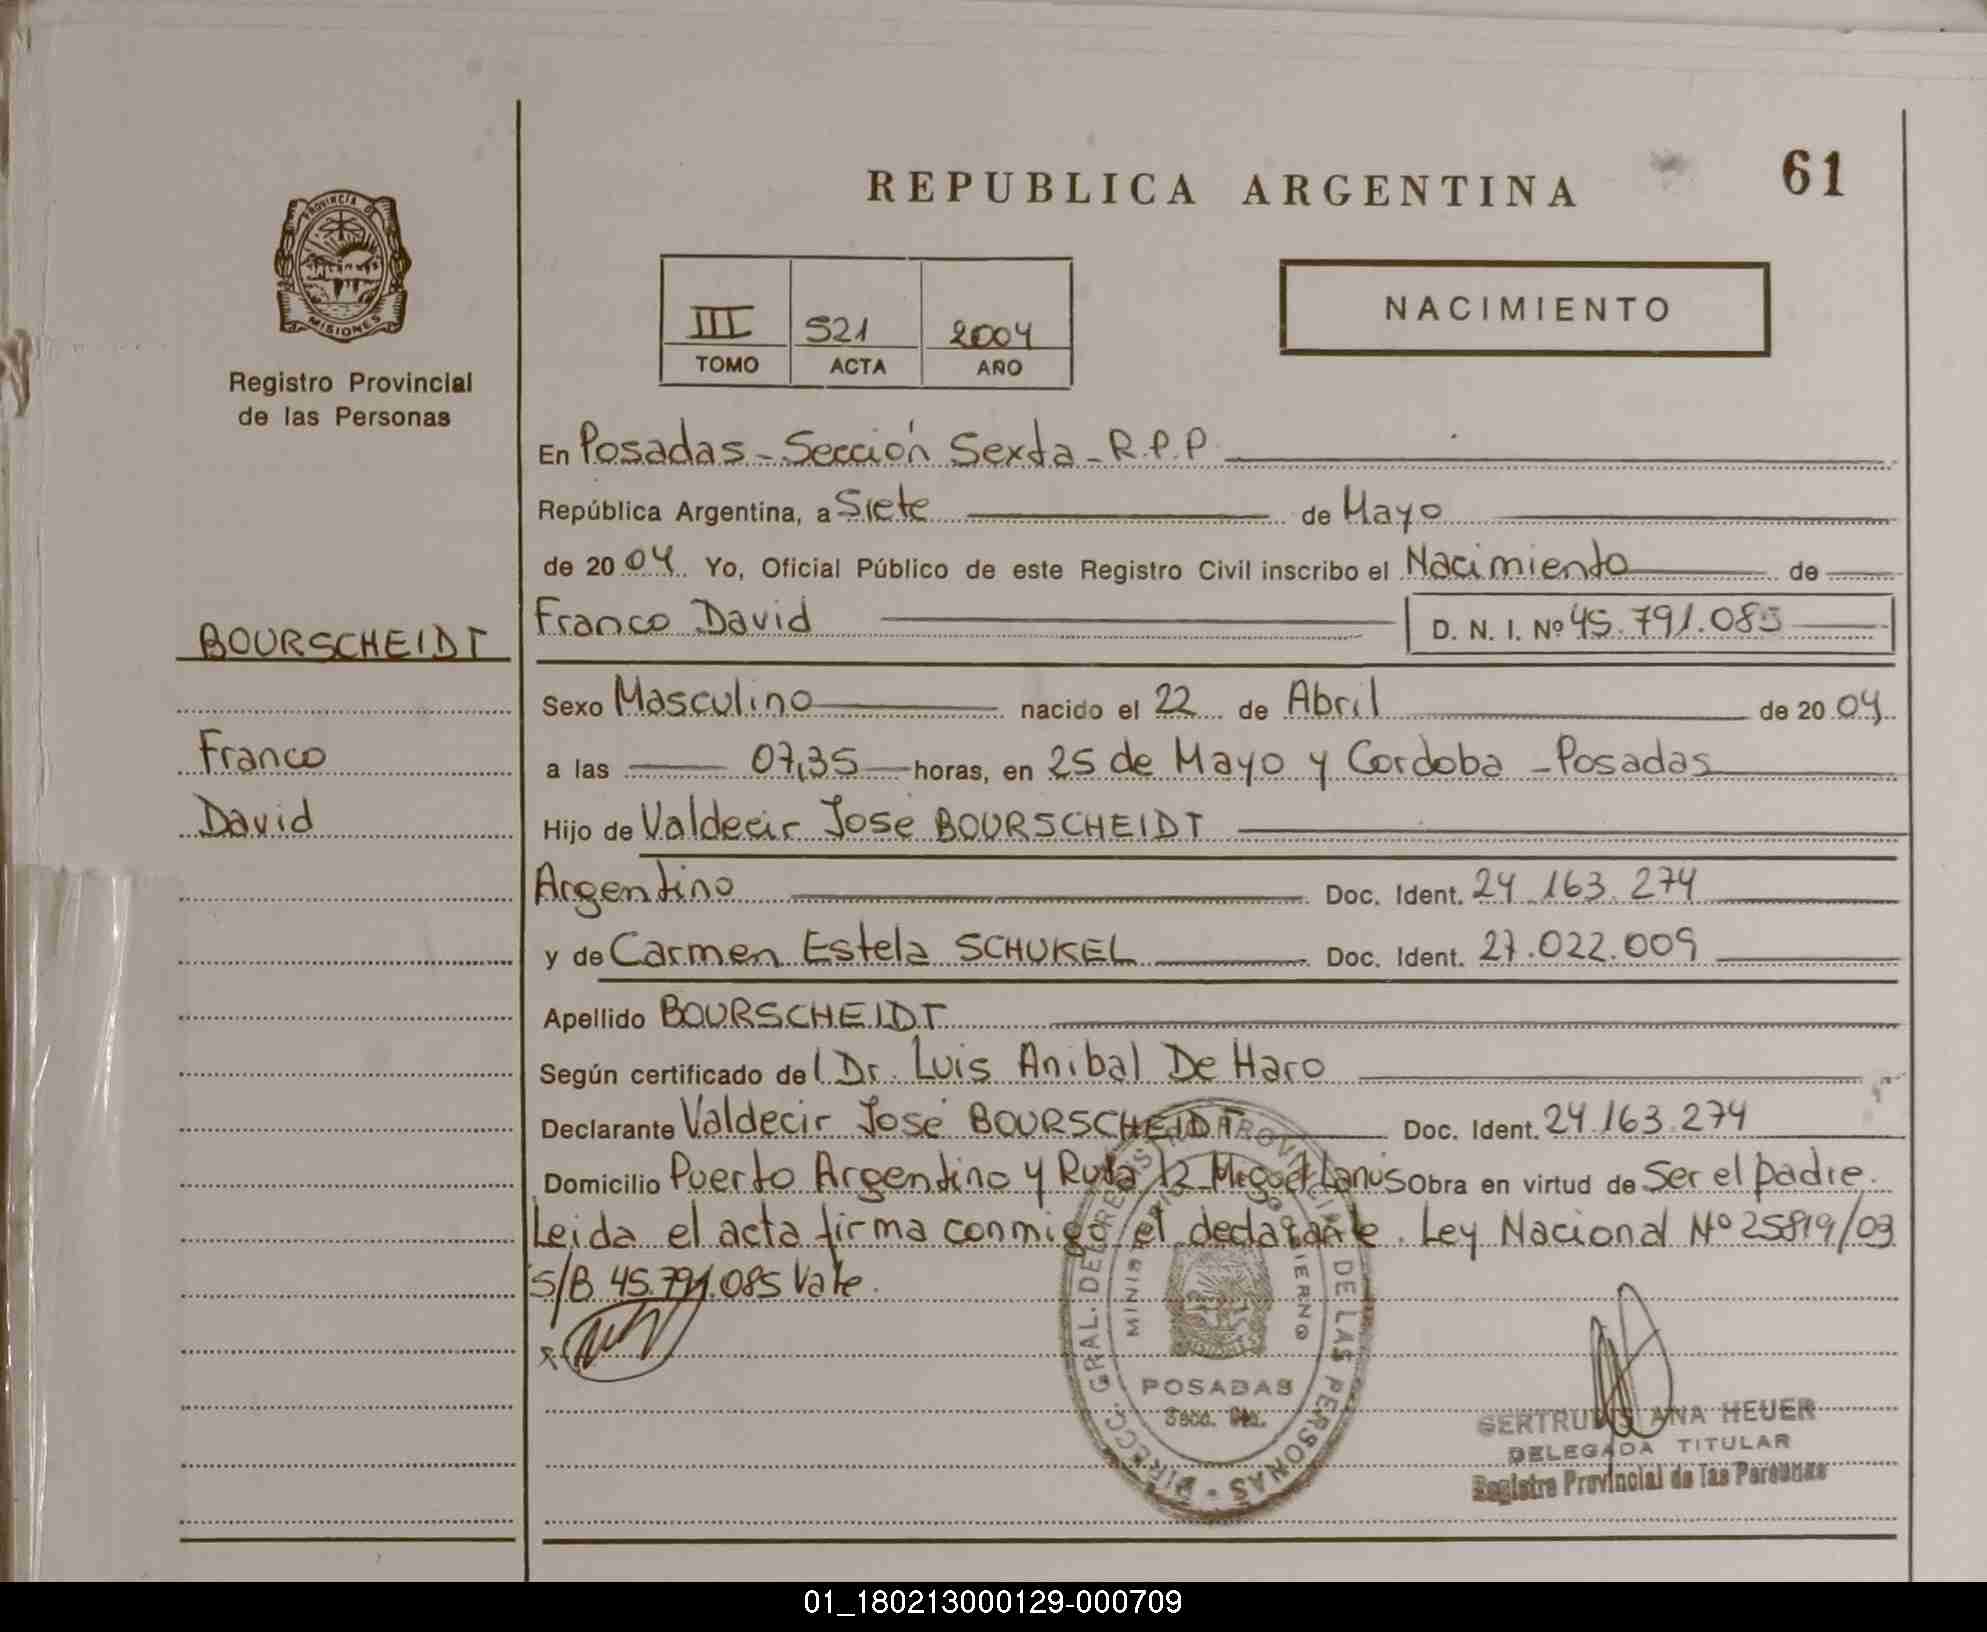 REPUBLICA ARGENTINA
61
PROVINCIA DE
MISIONES
Registro Provincial
de las Personas
III 521 2004
TOMO ACTA AÑO
NACIMIENTO
En Posadas - Sección Sexta - R.P.P
República Argentina, a Siete de Mayo
de 2004 Yo, Oficial Público de este Registro Civil inscribo el Nacimiento de
BOURSCHEIDT
Franco David D. N. I. Nº 45.791.085
Sexo Masculino nacido el 22 de Abril de 2004
Franco
a las 07,35 horas, en 25 de Mayo y Cordoba - Posadas
David
Hijo de Valdecir José BOURSCHEIDT
Argentino Doc. Ident. 24.163.274
y de Carmen Estela SCHUKEL Doc. Ident. 27.022.009
Apellido BOURSCHEIDT
Según certificado del Dr. Luis Anibal De Haro
Declarante Valdecir José BOURSCHEIDT Doc. Ident. 24.163.274
Domicilio Puerto Argentino y Ruta 12 Miguel Lanús Obra en virtud de Ser el padre.
Leida el acta firma conmigo el declarante. Ley Nacional Nº 25819/03
S/B 45.791.085 Vale.
DIRECC. GRAL. DEL REGISTRO PROVINCIAL DE LAS PERSONAS
POSADAS
Secc. 6ta.
GERTRUDIS ANA HEUER
DELEGADA TITULAR
Registro Provincial de las Personas
01_180213000129-000709